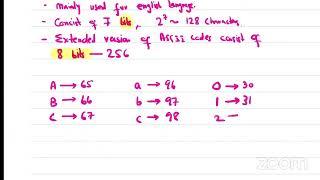 - Mainly used for english language.
- Consist of 7 bits, 2⁷ ~ 128 characters
- Extended version of ASSII codes consist of
8 bits — 256
A → 65 a → 96 0 → 30
B → 66 b → 97 1 → 31
C → 67 c → 98 2 —
zoom